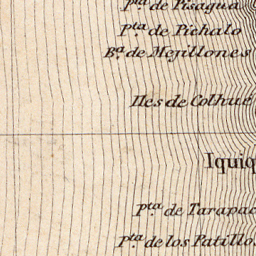 Pta. de Pisagua
Pta. de Pichalo
Ba. de Mejillones
Iles de Colhue
Iquiq
Pta. de Tarapac
Pta. de los Patillos